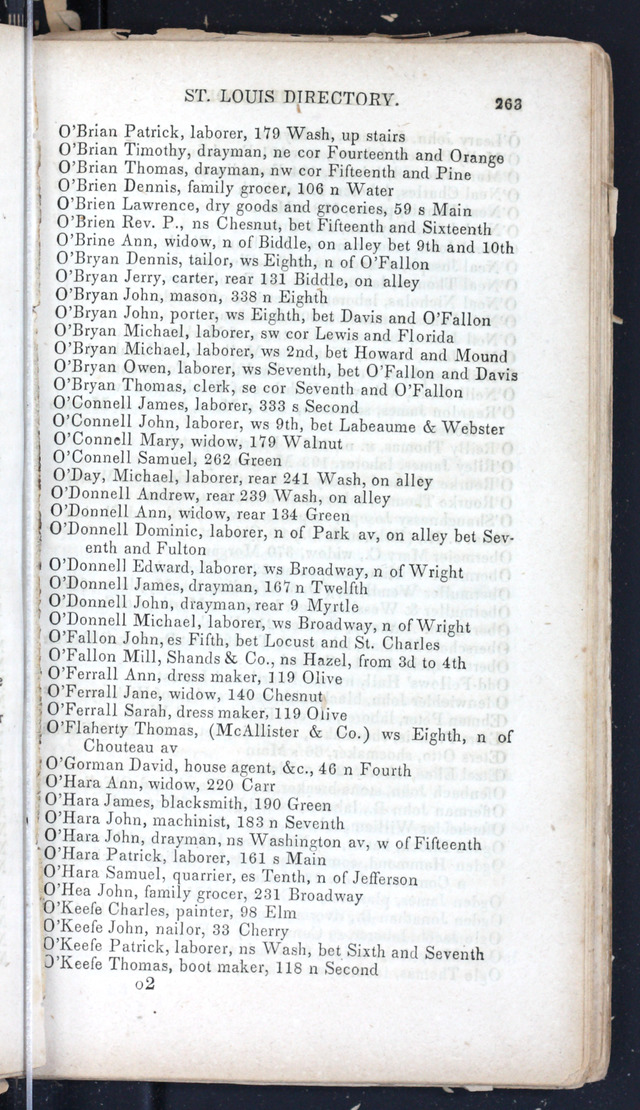 ST. LOUIS DIRECTORY. 263
O'Brian Patrick, laborer, 179 Wash, up stairs
O'Brian Timothy, drayman, ne cor Fourteenth and Orange
O'Brian Thomas, drayman, nw cor Fifteenth and Pine
O'Brien Dennis, family grocer, 106 n Water
O'Brien Lawrence, dry goods and groceries, 59 s Main
O'Brien Rev. P., ns Chesnut, bet Fifteenth and Sixteenth
O'Brine Ann, widow, n of Biddle, on alley bet 9th and 10th
O'Bryan Dennis, tailor, ws Eighth, n of O'Fallon
O'Bryan Jerry, carter, rear 131 Biddle, on alley
O'Bryan John, mason, 338 n Eighth
O'Bryan John, porter, ws Eighth, bet Davis and O'Fallon
O'Bryan Michael, laborer, sw cor Lewis and Florida
O'Bryan Michael, laborer, ws 2nd, bet Howard and Mound
O'Bryan Owen, laborer, ws Seventh, bet O'Fallon and Davis
O'Bryan Thomas, clerk, se cor Seventh and O'Fallon
O'Connell James, laborer, 333 s Second
O'Connell John, laborer, ws 9th, bet Labeaume & Webster
O'Connell Mary, widow, 179 Walnut
O'Connell Samuel, 262 Green
O'Day, Michael, laborer, rear 241 Wash, on alley
O'Donnell Andrew, rear 239 Wash, on alley
O'Donnell Ann, widow, rear 134 Green
O'Donnell Dominic, laborer, n of Park av, on alley bet Sev-
enth and Fulton
O'Donnell Edward, laborer, ws Broadway, n of Wright
O'Donnell James, drayman, 167 n Twelfth
O'Donnell John, drayman, rear 9 Myrtle
O'Donnell Michael, laborer, ws Broadway, n of Wright
O'Fallon John, es Fifth, bet Locust and St. Charles
O'Fallon Mill, Shands & Co., ns Hazel, from 3d to 4th
O'Ferrall Ann, dress maker, 119 Olive
O'Ferrall Jane, widow, 140 Chesnut
O'Ferrall Sarah, dress maker, 119 Olive
O'Flaherty Thomas, (McAllister & Co.) ws Eighth, n of
Chouteau av
O'Gorman David, house agent, &c., 46 n Fourth
O'Hara Ann, widow, 220 Carr
O'Hara James, blacksmith, 190 Green
O'Hara John, machinist, 183 n Seventh
O'Hara John, drayman, ns Washington av, w of Fifteenth
O'Hara Patrick, laborer, 161 s Main
O'Hara Samuel, quarrier, es Tenth, n of Jefferson
O'Hea John, family grocer, 231 Broadway
O'Keefe Charles, painter, 98 Elm
O'Keefe John, nailor, 33 Cherry
O'Keefe Patrick, laborer, ns Wash, bet Sixth and Seventh
O'Keefe Thomas, boot maker, 118 n Second
o2